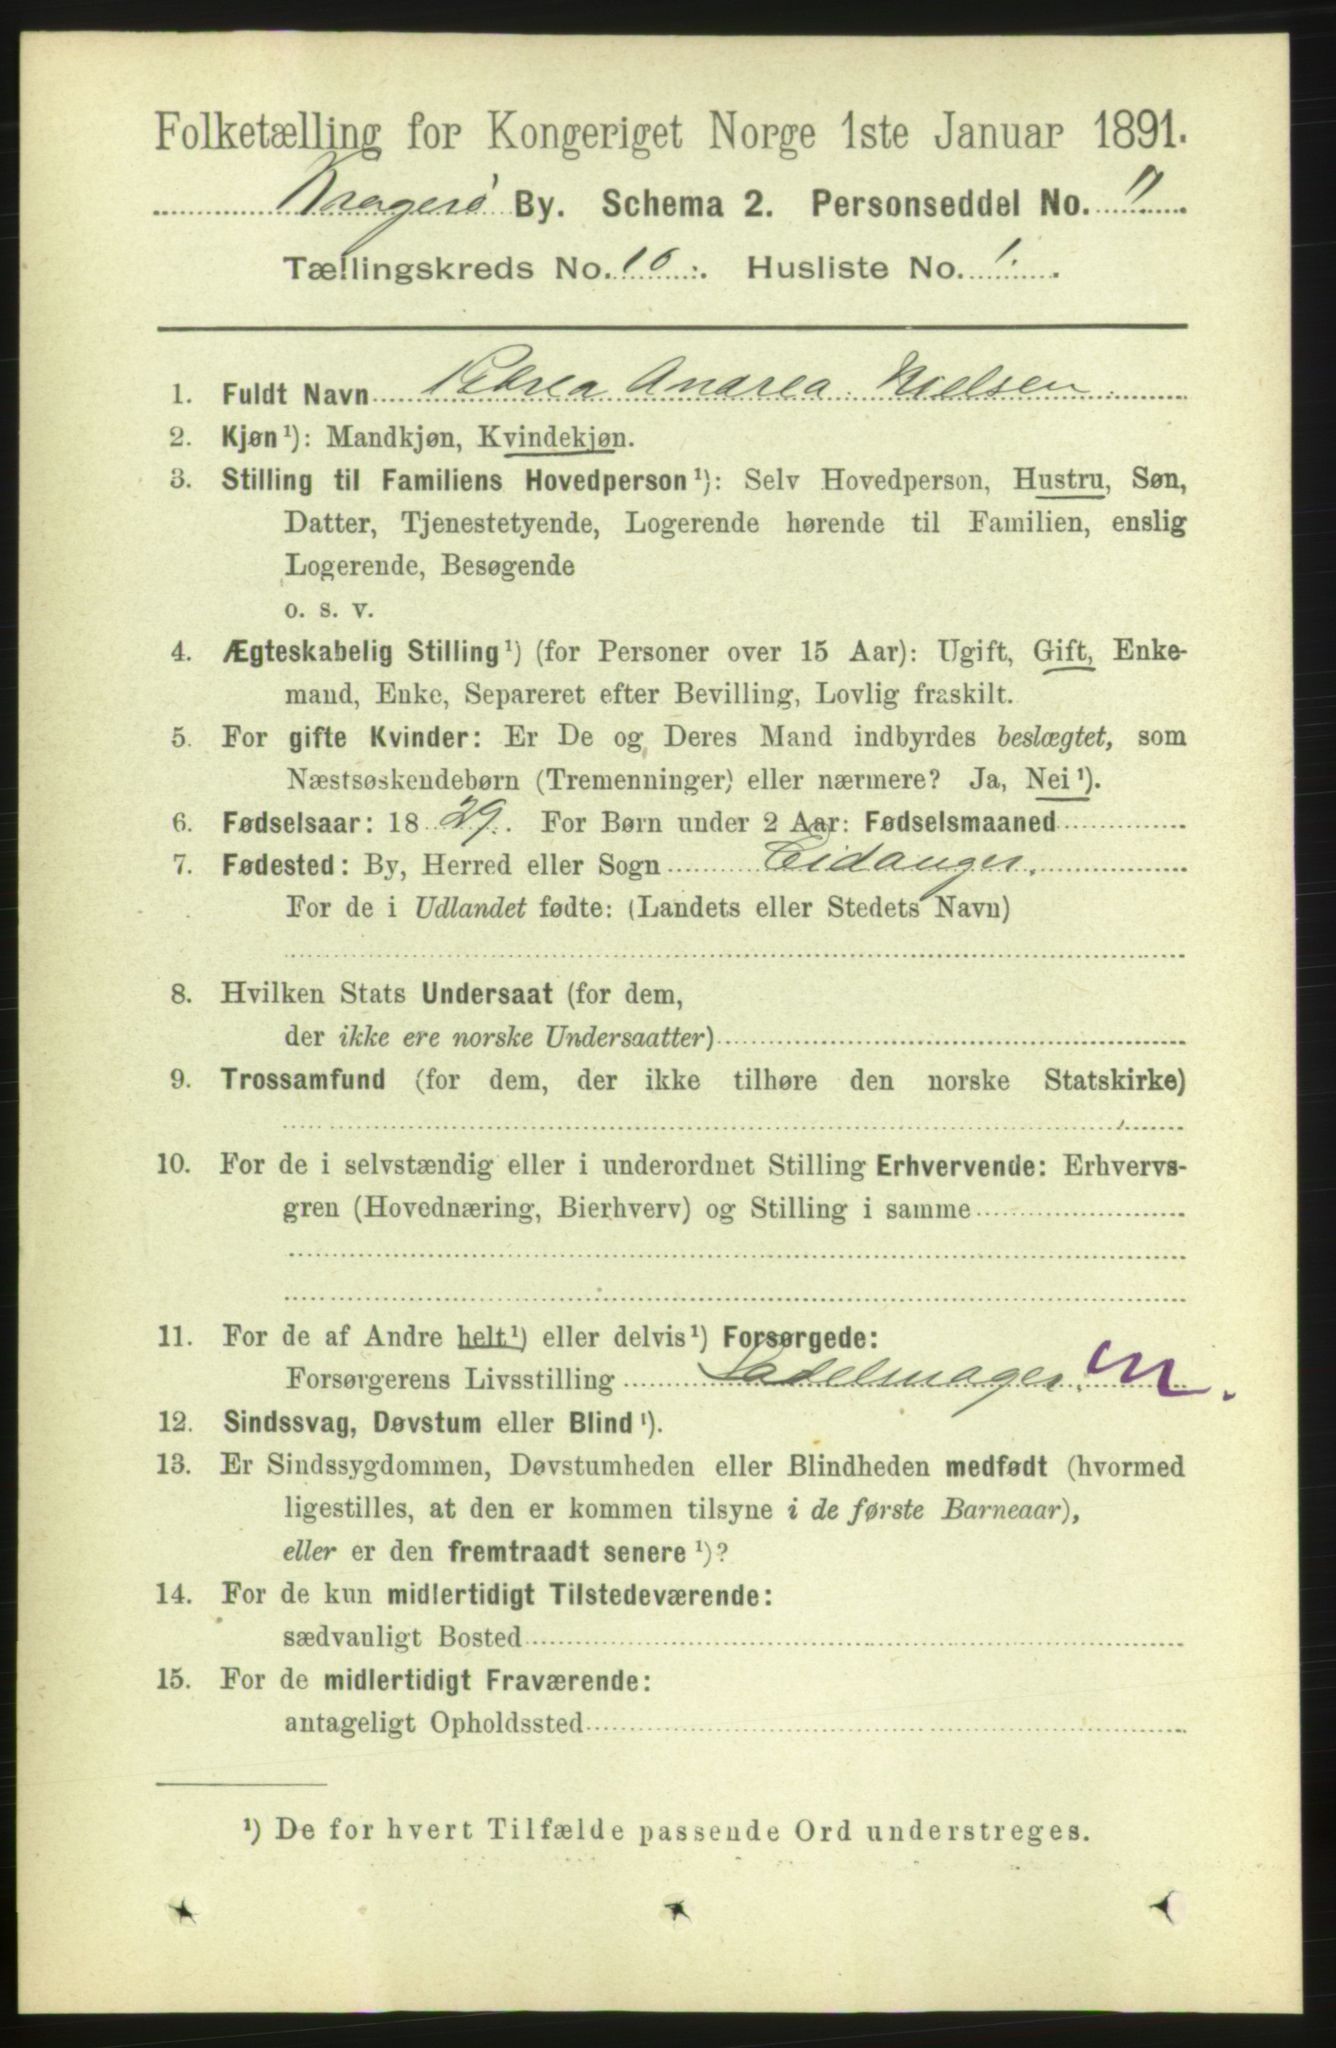 Folketælling for Kongeriget Norge 1ste Januar 1891.
Kragerø By. Schema 2. Personseddel No.
Tællingskreds No. 10. Husliste No. 1.
1. Fuldt Navn Petrea Andrea Nielsen
2. Kjøn¹): Mandkjøn, Kvindekjøn.
3. Stilling til Familiens Hovedperson¹): Selv Hovedperson, Hustru, Søn,
Datter, Tjenestetyende, Logerende hørende til Familien, enslig
Logerende, Besøgende
o. s. v.
4. Ægteskabelig Stilling¹) (for Personer over 15 Aar): Ugift, Gift, Enke-
mand, Enke, Separeret efter Bevilling, Lovlig fraskilt.
5. For gifte Kvinder: Er De og Deres Mand indbyrdes beslægtet, som
Næstsøskendebørn (Tremenninger) eller nærmere? Ja, Nei¹).
6. Fødselsaar: 1829. For Børn under 2 Aar: Fødselsmaaned
7. Fødested: By, Herred eller Sogn Eidanger.
For de i Udlandet fødte: (Landets eller Stedets Navn)
8. Hvilken Stats Undersaat (for dem,
der ikke ere norske Undersaatter)
9. Trossamfund (for dem, der ikke tilhøre den norske Statskirke)
10. For de i selvstændig eller i underordnet Stilling Erhvervende: Erhvervs-
gren (Hovednæring, Bierhverv) og Stilling i samme
11. For de af Andre helt¹) eller delvis¹) Forsørgede:
Forsørgerens Livsstilling Sadelmager. M.
12. Sindssvag, Døvstum eller Blind¹).
13. Er Sindssygdommen, Døvstumheden eller Blindheden medfødt (hvormed
ligestilles, at den er kommen tilsyne i de første Barneaar),
eller er den fremtraadt senere¹)?
14. For de kun midlertidigt Tilstedeværende:
sædvanligt Bosted
15. For de midlertidigt Fraværende:
antageligt Opholdssted
¹) De for hvert Tilfælde passende Ord understreges.